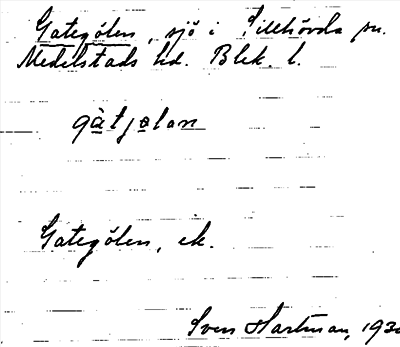 Gategölen, sjö i Tillhövda sn.
Medelstads hd. Blek. l.
gàtjølan
Gategölen, ek.
Sven Hartman, 193